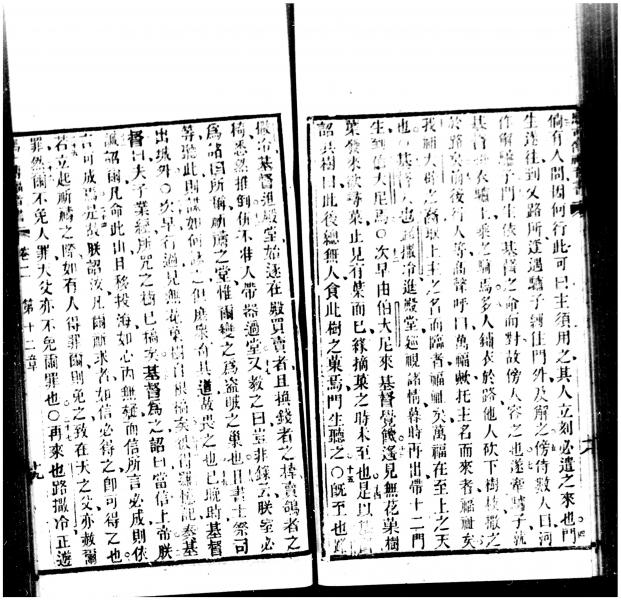 倘有人問因何行此可曰主須用之其人立刻必遣之來也門
生遂往到叉路所逆遇驢子縛住門外及解之傍侍數人曰何
作解驢子門生依基督之命而對故傍人容之也遂牽驢子就
基督上衣驢上乘之騎焉多人鋪衣於路他人砍下樹枝散之
於路矣前後行人等高聲呼曰萬福歟托主名而來者福祉矣
我祖大樹之裔握上主之名而臨者福祉矣萬福在至上之天
也基督人也路撒冷進殿堂巡視諸情暮時再出帶十二門
生到伯大尼焉〇次早由伯大尼來基督覺饑遙見無花菓樹
葉發來欲尋菓止見有葉而已緣摘菓之時未至也是以
詔其樹曰此後總無人食此樹之菓焉門生聽之〇既至也路
撒冷基督進殿堂始逐在殿買賣者且換錢者之棹賣鴿者之
椅悉然推倒矣不准人帶器過堂又教之曰豈非錄云朕室必
爲諸國所稱祈禱之堂惟爾變之爲盜賊之巢也且書士祭司
等聽此則謀如何滅之但庶衆奇其道故畏之也已晚時基督
出城外〇次早行過見無花菓樹自根槁矣彼得運憶記奏基
督曰夫子業經所咒之樹已槁矣基督爲之詔曰當信上帝朕
誠詔爾凡命此山曰移投海如心內無疑而信所言必成則依
言可成焉是以朕詔汝凡爾祈求者如信必得之卽可得之也
若立起祈禱之際如有人得罪爾則免之致在天之父亦赦爾
罪然爾不免人罪天父亦不免爾罪也〇再來也路撒冷正遊
卷二 第十二章 十九